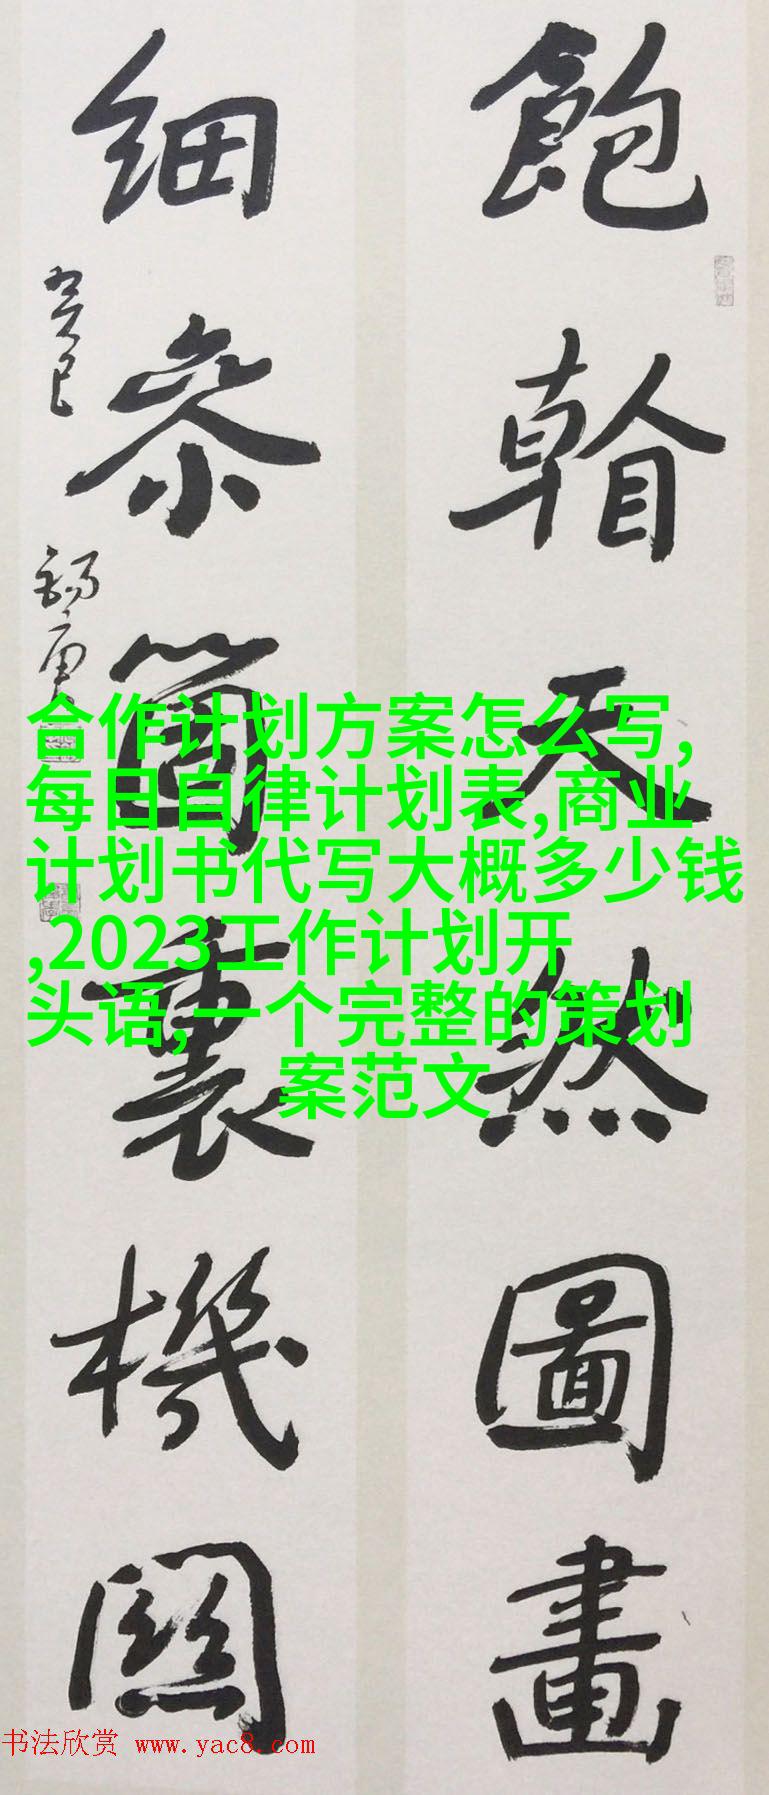 飽看天然圖畫
細參箇裏機關
癸巳
合作计划方案怎么写,
每日自律计划表,商业
计划书代写大概多少钱
,2023工作计划开
头语,一个完整的策划
案范文
书法欣赏 www.yac8.com